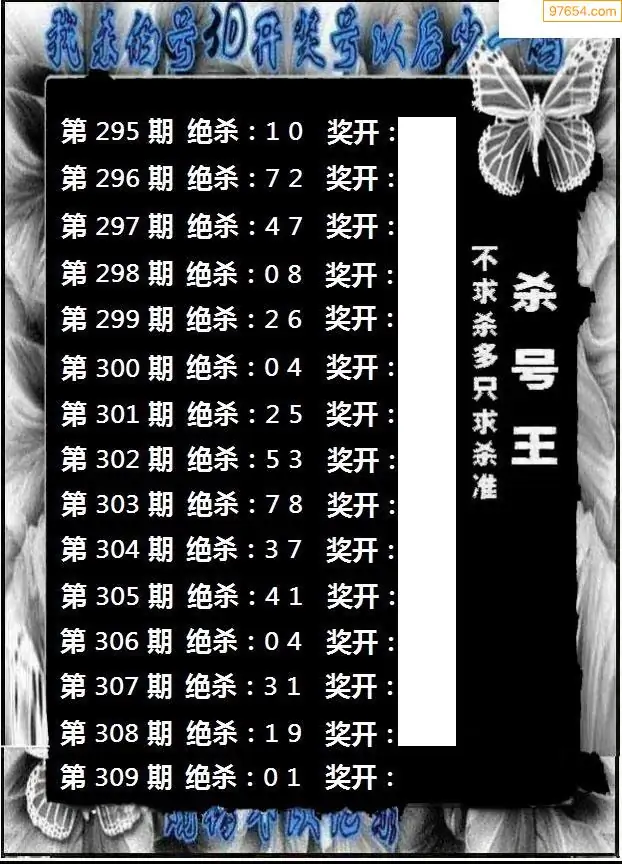 97654.com
我杀的号3D开奖号以后少一码
第 295 期 绝杀：1 0 奖开：
第 296 期 绝杀：7 2 奖开：
第 297 期 绝杀：4 7 奖开：
第 298 期 绝杀：0 8 奖开：
第 299 期 绝杀：2 6 奖开：
第 300 期 绝杀：0 4 奖开：
第 301 期 绝杀：2 5 奖开：
第 302 期 绝杀：5 3 奖开：
第 303 期 绝杀：7 8 奖开：
第 304 期 绝杀：3 7 奖开：
第 305 期 绝杀：4 1 奖开：
第 306 期 绝杀：0 4 奖开：
第 307 期 绝杀：3 1 奖开：
第 308 期 绝杀：1 9 奖开：
第 309 期 绝杀：0 1 奖开：
杀号王
不求杀多只求杀准